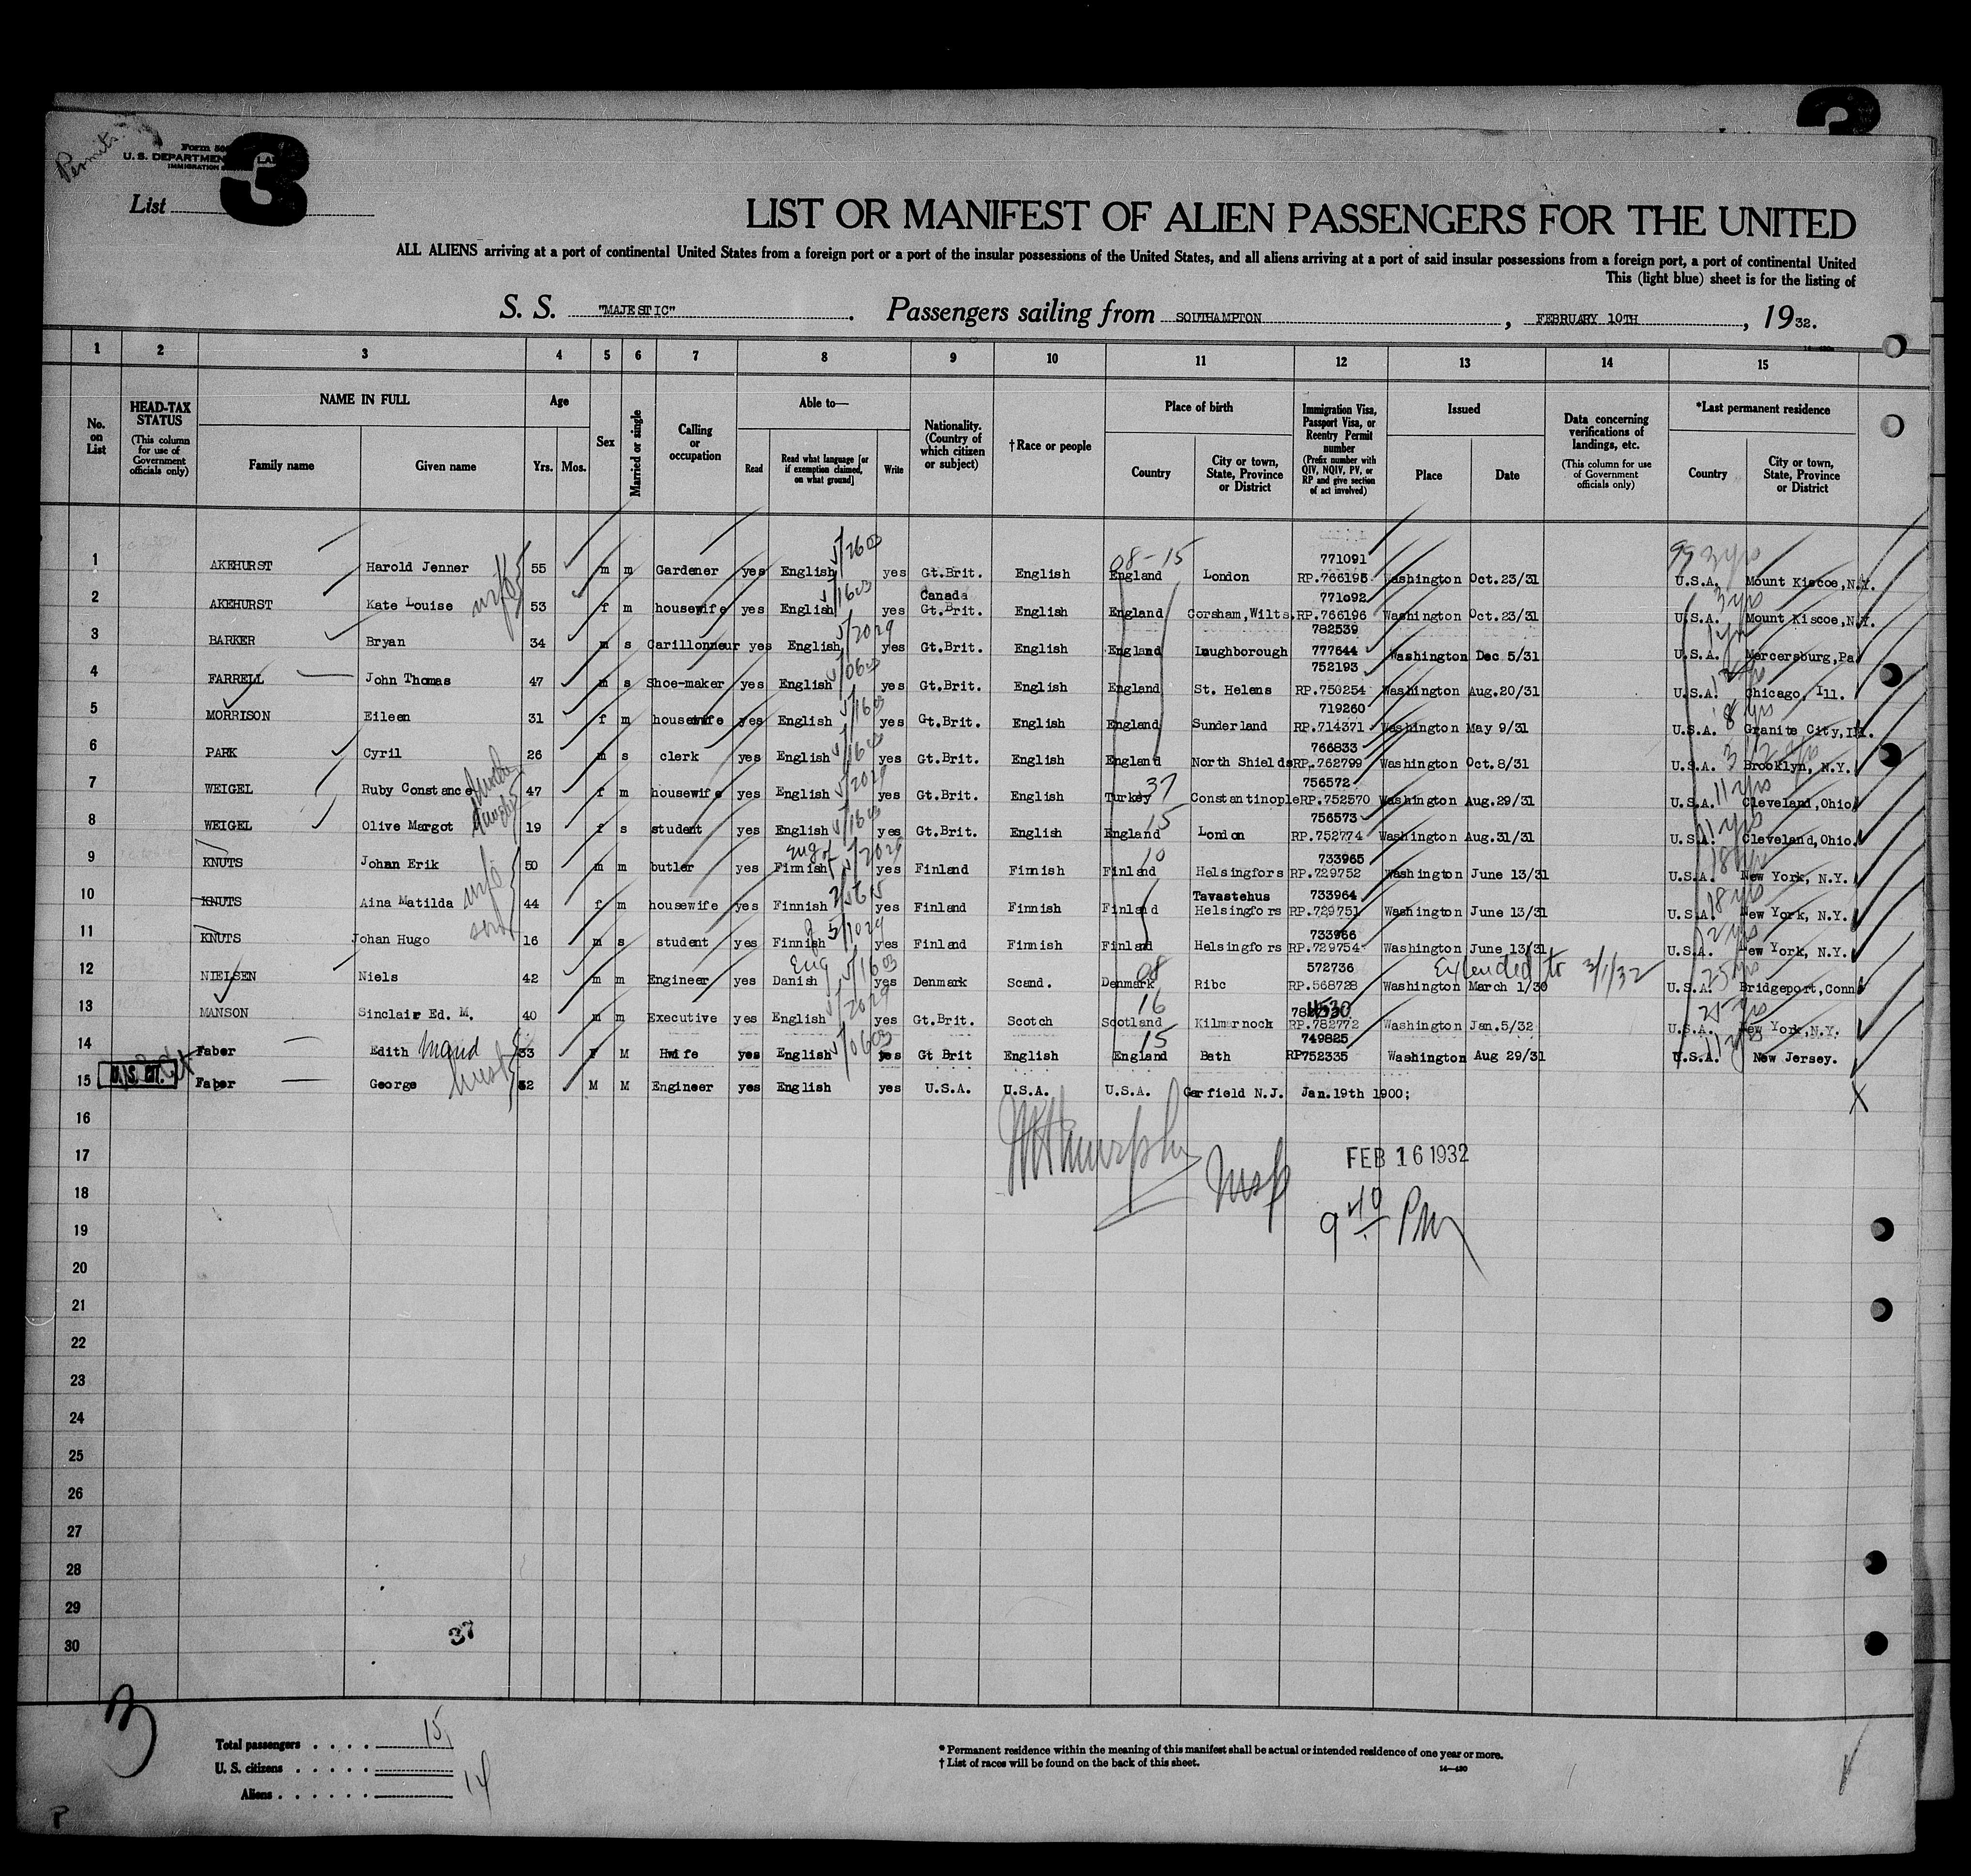 3
Permits
Form 50
U. S. DEPARTMEN LA
IMMIGRATION
List 3
LIST OR MANIFEST OF ALIEN PASSENGERS FOR THE UNITED
ALL ALIENS arriving at a port of continental United States from a foreign port or a port of the insular possessions of the United States, and all aliens arriving at a port of said insular possessions from a foreign port, a port of continental United
This (light blue) sheet is for the listing of
S. S. "MAJESTIC". Passengers sailing from SOUTHAMPTON, FEBRUARY 10TH, 1932.
1 2 3 4 5 6 7 8 9 10 11 12 13 14 15
No. on List
HEAD-TAX STATUS (This column for use of Government officials only)
NAME IN FULL
Family name Given name
Age
Yrs. Mos.
Sex
Married or single
Calling or occupation
Able to—
Read Read what language [or if exemption claimed, on what ground] Write
Nationality. (Country of which citizen or subject)
†Race or people
Place of birth
Country City or town, State, Province or District
Immigration Visa, Passport Visa, or Reentry Permit number (Prefix number with QIV, NQIV, PV, or RP and give section of act involved)
Issued
Place Date
Data concerning verifications of landings, etc. (This column for use of Government officials only)
*Last permanent residence
Country City or town, State, Province or District
08-15 771091 99 3 yrs
1 AKEHURST Harold Jenner 55 m m Gardener yes English yes Gt.Brit. English England London RP.766195 Washington Oct.23/31 U.S.A. Mount Kiscoe,N.Y.
wife Canada 771092 3 yrs
2 AKEHURST Kate Louise 53 f m housewife yes English yes Gt.Brit. English England Corsham,Wilts. RP.766196 Washington Oct.23/31 U.S.A. Mount Kiscoe,N.Y.
782539
3 BARKER Bryan 34 m s Carillonneur yes English yes Gt.Brit. English England Loughborough 777644 Washington Dec 5/31 U.S.A. Mercersburg,Pa
752193
4 FARRELL John Thomas 47 m s Shoe-maker yes English yes Gt.Brit. English England St. Helens RP.750254 Washington Aug.20/31 U.S.A. Chicago, Ill.
719260 8 yrs
5 MORRISON Eileen 31 f m housewife yes English yes Gt.Brit. English England Sunderland RP.714371 Washington May 9/31 U.S.A. Granite City,Ill.
766833
6 PARK Cyril 26 m s clerk yes English yes Gt.Brit. English England North Shields RP.762799 Washington Oct.8/31 U.S.A. 3 Brooklyn, N.Y.
37 756572 11 yrs
7 WEIGEL Ruby Constance 47 f m housewife yes English yes Gt.Brit. English Turkey Constantinople RP.752570 Washington Aug.29/31 U.S.A. Cleveland,Ohio
15 756573 11 yrs
8 WEIGEL Olive Margot 19 f s student yes English yes Gt.Brit. English England London RP.752774 Washington Aug.31/31 U.S.A. Cleveland,Ohio.
10 733965 18 yrs
9 KNUTS Johan Erik 50 m m butler yes Finnish yes Finland Finnish Finland Helsingfors RP.729752 Washington June 13/31 U.S.A. New York, N.Y.
wife Tavastehus 733964 18 yrs
10 KNUTS Aina Matilda 44 f m housewife yes Finnish yes Finland Finnish Finland Helsingfors RP.729751 Washington June 13/31 U.S.A. New York, N.Y.
son 733966
11 KNUTS Johan Hugo 16 m s student yes Finnish yes Finland Finnish Finland Helsingfors RP.729754 Washington June 13/31 U.S.A. New York, N.Y.
Eng 08 572736 Extended to 3/1/32 25 yrs
12 NIELSEN Niels 42 m m Engineer yes Danish yes Denmark Scand. Denmark Ribe RP.568728 Washington March 1/30 U.S.A. Bridgeport,Conn
16
13 MANSON Sinclair Ed. M. 40 m m Executive yes English yes Gt.Brit. Scotch Scotland Kilmarnock RP.782772 Washington Jan.5/32 U.S.A. New York,N.Y.
15 749825
14 Faber Edith Maud 33 F M Hwife yes English yes Gt Brit English England Bath RP752335 Washington Aug 29/31 U.S.A. New Jersey.
U.S. CIT. husb
15 Faber George 32 M M Engineer yes English yes U.S.A. U.S.A. U.S.A. Garfield N.J. Jan.19th 1900; X
16
17 Insp FEB 16 1932
18
19 9 40 PM
20
21
22
23
24
25
26
27
28
29
37
30
3
Total passengers 15
U. S. citizens
Aliens 14
* Permanent residence within the meaning of this manifest shall be actual or intended residence of one year or more.
† List of races will be found on the back of this sheet.
14—430
P